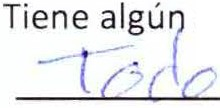 Tiene algún
Todo